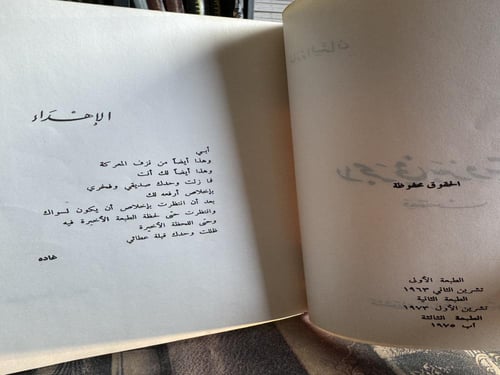 الحقوق محفوظة
الطبعة الأولى
تشرين الثاني ١٩٦٣
الطبعة الثانية
تشرين الأول ١٩٧٣
الطبعة الثالثة
آب ١٩٧٥
الإهداء
أبي
وهذا أيضاً من نزف المعركة
وهذا أيضاً لك أنت
فما زلت وحدك صديقي وفخري
بإخلاص أرفعه لك
بعد أن انتظرت بإخلاص أن يكون لسواك
وانتظرت حتى لحظة الطبعة الأخيرة فيه
وحتى اللحظة الأخيرة
ظللت وحدك قبلة عطائي
غاده